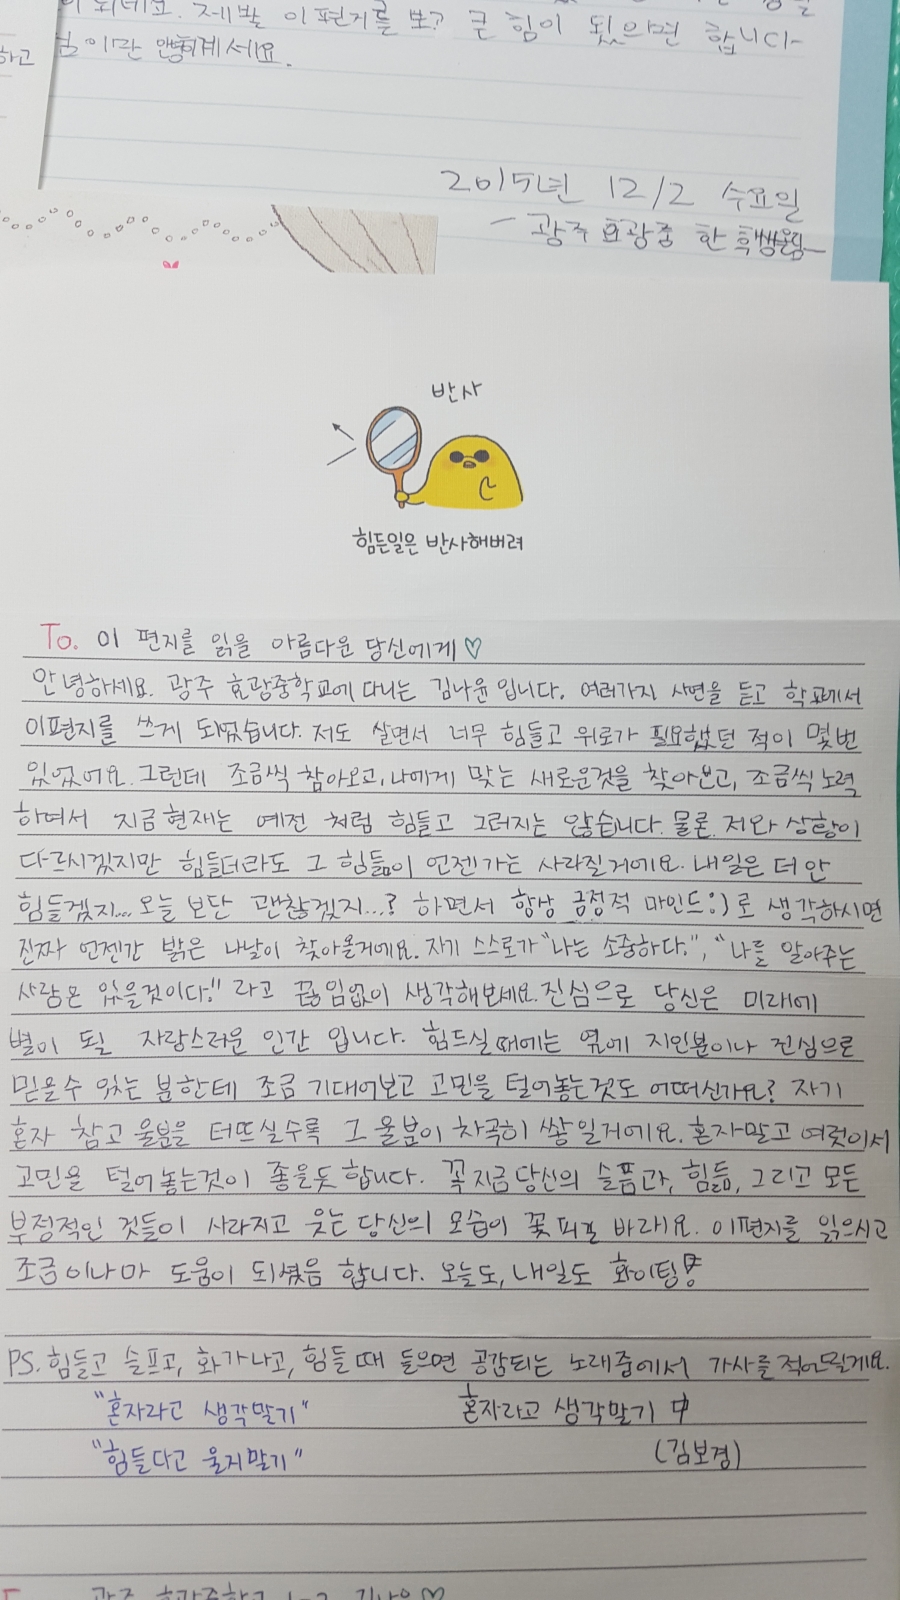 이 되네요. 제발 이 편지를 보고 큰 힘이 됬으면 합니다
하고
힘이만 계세요.
2015년 12/2 수요일
- 광주 효광중 한 학생올림-
반사
힘든일은 반사해버려
To. 이 편지를 읽을 아름다운 당신에게♡
안녕하세요. 광주 효광중학교에 다니는 김나윤입니다. 여러가지 사연을 듣고 학교에서
이편지를 쓰게 되었습니다. 저도 살면서 너무 힘들고 위로가 필요했던 적이 몇번
있었어요. 그런데 조금씩 참아오고, 나에게 맞는 새로운것을 찾아보고, 조금씩 노력
하여서 지금현재는 예전 처럼 힘들고 그러지는 않습니다. 물론 저와 상황이
다르시겠지만 힘들더라도 그 힘듦이 언젠가는 사라질거에요. 내일은 더 안
힘들겠지... 오늘 보단 괜찮겠지...? 하면서 항상 긍정적 마인드:)로 생각하시면
진짜 언젠간 밝은 나날이 찾아올거에요. 자기 스스로가 "나는 소중하다.", "나를 알아주는
사람은 있을것이다!" 라고 끊임없이 생각해보세요. 진심으로 당신은 미래에
별이 될 자랑스러운 인간 입니다. 힘드실때에는 옆에 지인분이나 진심으로
믿을수 있는 분한테 조금 기대어보고 고민을 털어놓는것도 어떠신가요? 자기
혼자 참고 울분을 터뜨실수록 그 울분이 차곡히 쌓일거에요. 혼자말고 여럿이서
고민을 털어놓는것이 좋을듯 합니다. 꼭 지금 당신의 슬픔과, 힘듦, 그리고 모든
부정적인 것들이 사라지고 웃는 당신의 모습이 꽃피길 바래요. 이편지를 읽으시고
조금이나마 도움이 되셨음 합니다. 오늘도, 내일도 화이팅!
PS. 힘들고 슬프고, 화가나고, 힘들때 들으면 공감되는 노래중에서 가사를 적어드릴게요.
"혼자라고 생각말기" 혼자라고 생각말기 中
"힘들다고 울지말기" (김보경)
광주 효광중학교 김나윤♡